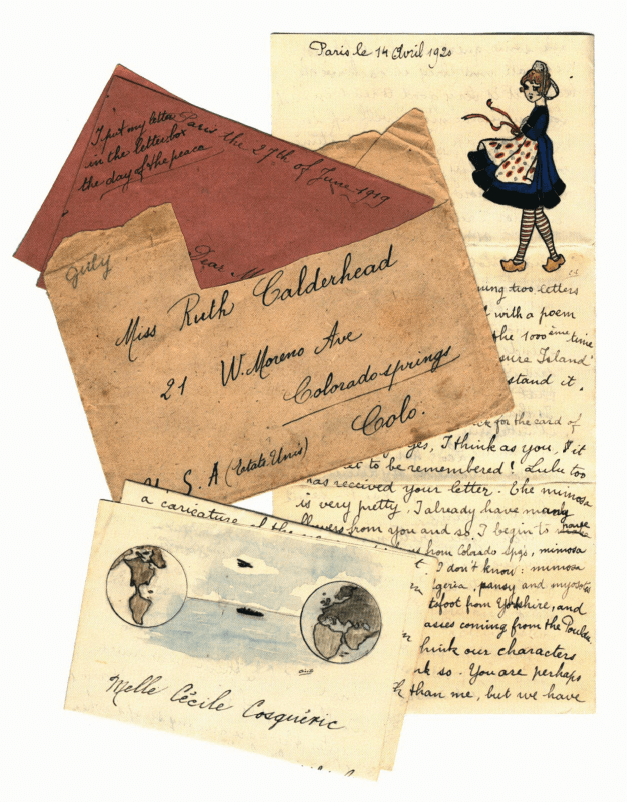 Paris le 14 Avril 1920
I put my letter
in the letterbox
the day of the peace
Paris the 27th of June 1919
Dear M
July
Miss Ruth Calderhead
21 W. Moreno Ave
Coloradosprings
Colo.
U. S. A (Etats Unis)
ning two letters
d with a poem
the 1000ème time
sure Island"
stand it.
ck for the card of
yes, I think as you, I it
at to be remembered! Lulu too
has received your letter. The mimosa
is very pretty. I already have many
flowers from you and so, I begin to
from Colorado Spgs, mimosa
t I don't know: mimosa
geria, pansy and myosotis
tsfoot from Yorkshire, and
asses coming from the
think our characters
nk so. You are perhaps
h than me, but we have
a caricature of the
Melle Cécile Cosquéric